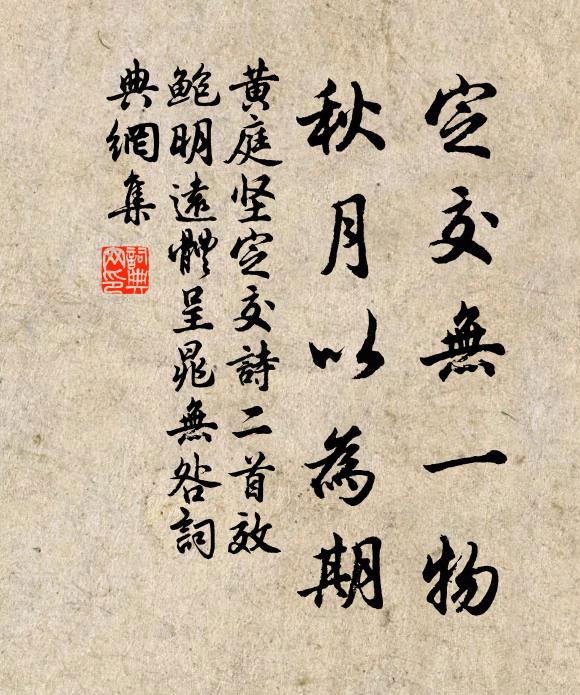 定交無一物
秋月以為期
黃庭坚定交詩二首效
鮑明遠體呈晁無咎詞
典網集
詞典
网印